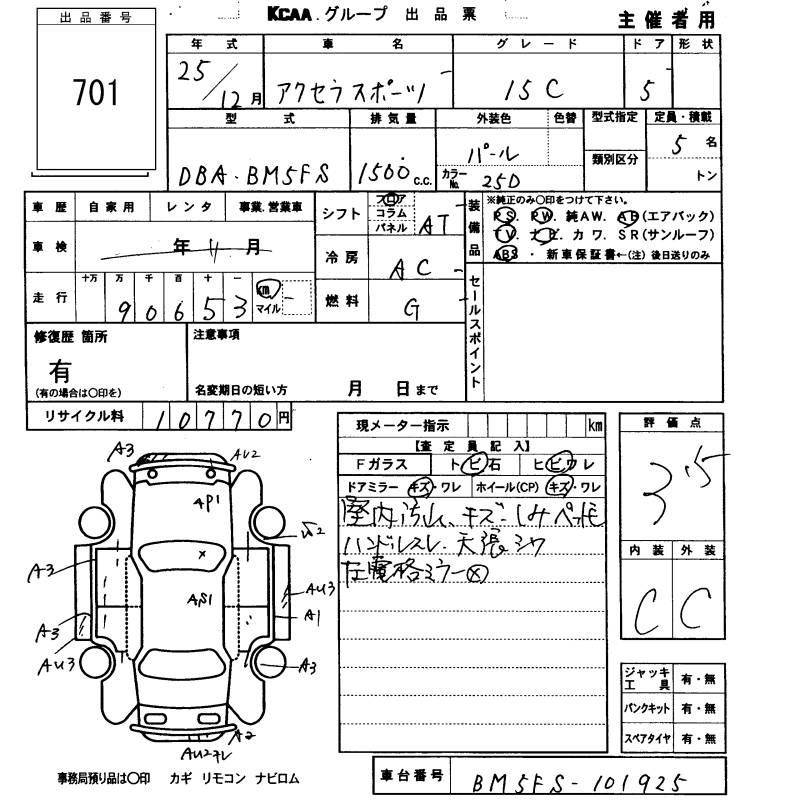 KCAA グループ 出品票
主催者用
出品番号
701
年式 車名 グレード ドア 形状
25/12月 アクセラスポーツ 15C 5
型式 排気量 外装色 色替 型式指定 定員・積載
DBA-BM5FS 1500c.c. パール 5名
カラーNo. 25D 類別区分 トン
車歴 自家用 レンタ 事業.営業車
車検 年 月
走行 十万 万 千 百 十 一
90653 km マイル
シフト フロア コラム パネル AT
冷房 AC
燃料 G
装備品 ※純正のみ〇印をつけて下さい。
PS. PW. 純AW. AB(エアバック)
TV. ナビ. カワ. SR(サンルーフ)
ABS ・ 新車保証書←(注)後日送りのみ
セールスポイント
修復歴 箇所
有
(有の場合は〇印を)
注意事項
名変期日の短い方 月 日まで
リサイクル料 10770円
現メーター指示 km
【査定員記入】
Fガラス トビ石 ヒビワレ
ドアミラー キズ・ワレ ホイール(CP) キズ・ワレ
室内汚れ、キズ・シミ ペット毛
ハンドルスレ、天張シワ
左電格ミラー
評価点
3.5
内装 外装
C C
ジャッキ工具 有・無
パンクキット 有・無
スペアタイヤ 有・無
A3 AU2
AP1
A3
AU3
AS1
A1
A3
AU3
A3
A2
AU2
事務局預り品は〇印 カギ リモコン ナビロム
車台番号 BM5FS-101925